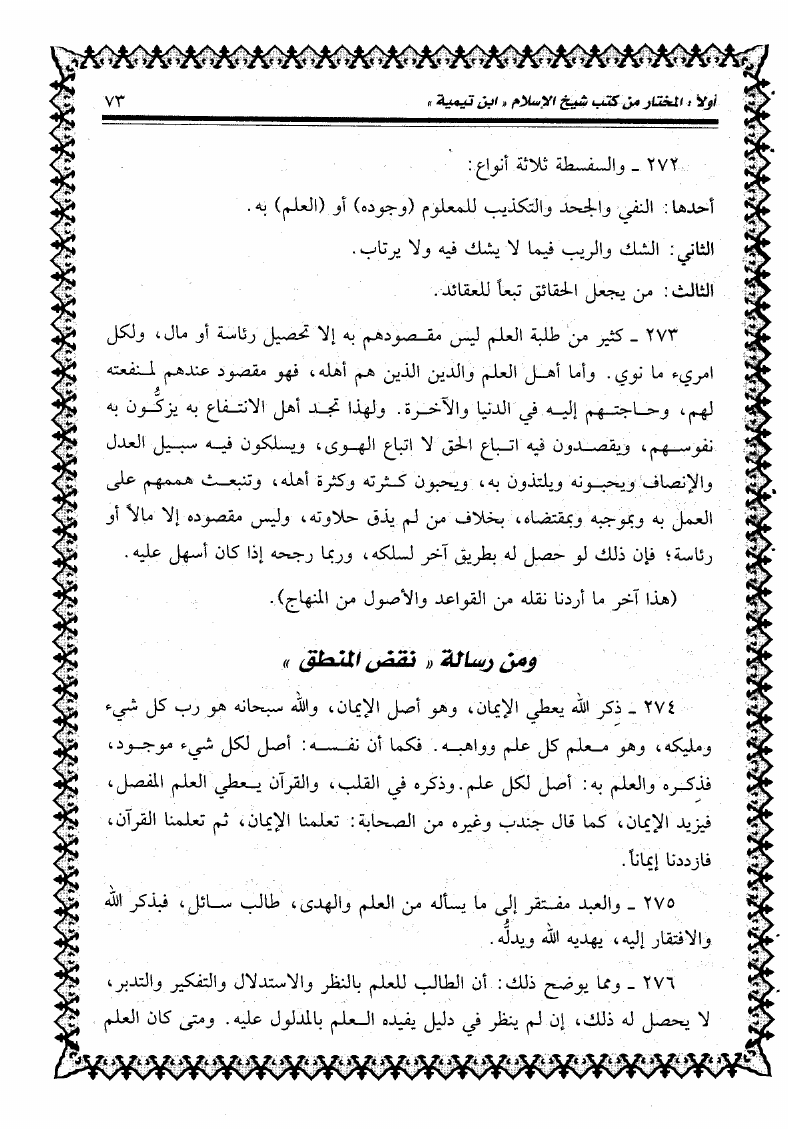 أولاً : المختار من كتب شيخ الإسلام « ابن تيمية » ٧٣
٢٧٢ ـ والسفسطة ثلاثة أنواع :
أحدها : النفي والجحد والتكذيب للمعلوم (وجوده) أو (العلم) به .
الثاني : الشك والريب فيما لا يشك فيه ولا يرتاب .
الثالث : من يجعل الحقائق تبعاً للعقائد .
٢٧٣ ـ كثير من طلبة العلم ليس مقصودهم به إلا تحصيل رئاسة أو مال ، ولكل
امريء ما نوي . وأما أهل العلم والدين الذين هم أهله ، فهو مقصود عندهم لمنفعته
لهم ، وحاجتهم إليه في الدنيا والآخرة . ولهذا تجد أهل الانتفاع به يزكُّون به
نفوسهم ، ويقصدون فيه اتباع الحق لا اتباع الهوى ، ويسلكون فيه سبيل العدل
والإنصاف ويحبونه ويلتذون به ، ويحبون كثرته وكثرة أهله ، وتنبعث هممهم على
العمل به وبموجبه وبمقتضاه ، بخلاف من لم يذق حلاوته ، وليس مقصوده إلا مالاً أو
رئاسة ؛ فإن ذلك لو حصل له بطريق آخر لسلكه ، وربما رجحه إذا كان أسهل عليه .
(هذا آخر ما أردنا نقله من القواعد والأصول من المنهاج) .
ومن رسالة « نقض المنطق »
٢٧٤ ـ ذِكر الله يعطي الإيمان ، وهو أصل الإيمان ، والله سبحانه هو رب كل شيء
ومليكه ، وهو معلم كل علم وواهبه . فكما أن نفسه : أصل لكل شيء موجود ،
فذِكره والعلم به : أصل لكل علم . وذكره في القلب ، والقرآن يعطي العلم المفصل ،
فيزيد الإيمان ، كما قال جندب وغيره من الصحابة : تعلمنا الإيمان ، ثم تعلمنا القرآن ،
فازددنا إيماناً .
٢٧٥ ـ والعبد مفتقر إلى ما يسأله من العلم والهدى ، طالب سائل ، فبذكر الله
والافتقار إليه ، يهديه الله ويدلُّه .
٢٧٦ ـ ومما يوضح ذلك : أن الطالب للعلم بالنظر والاستدلال والتفكير والتدبر ،
لا يحصل له ذلك ، إن لم ينظر في دليل يفيده العلم بالمدلول عليه . ومتى كان العلم